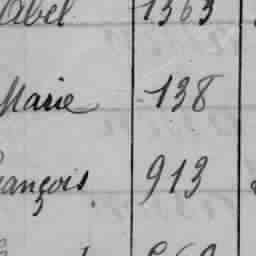 Abel 1363
Marie 138
ançois 913